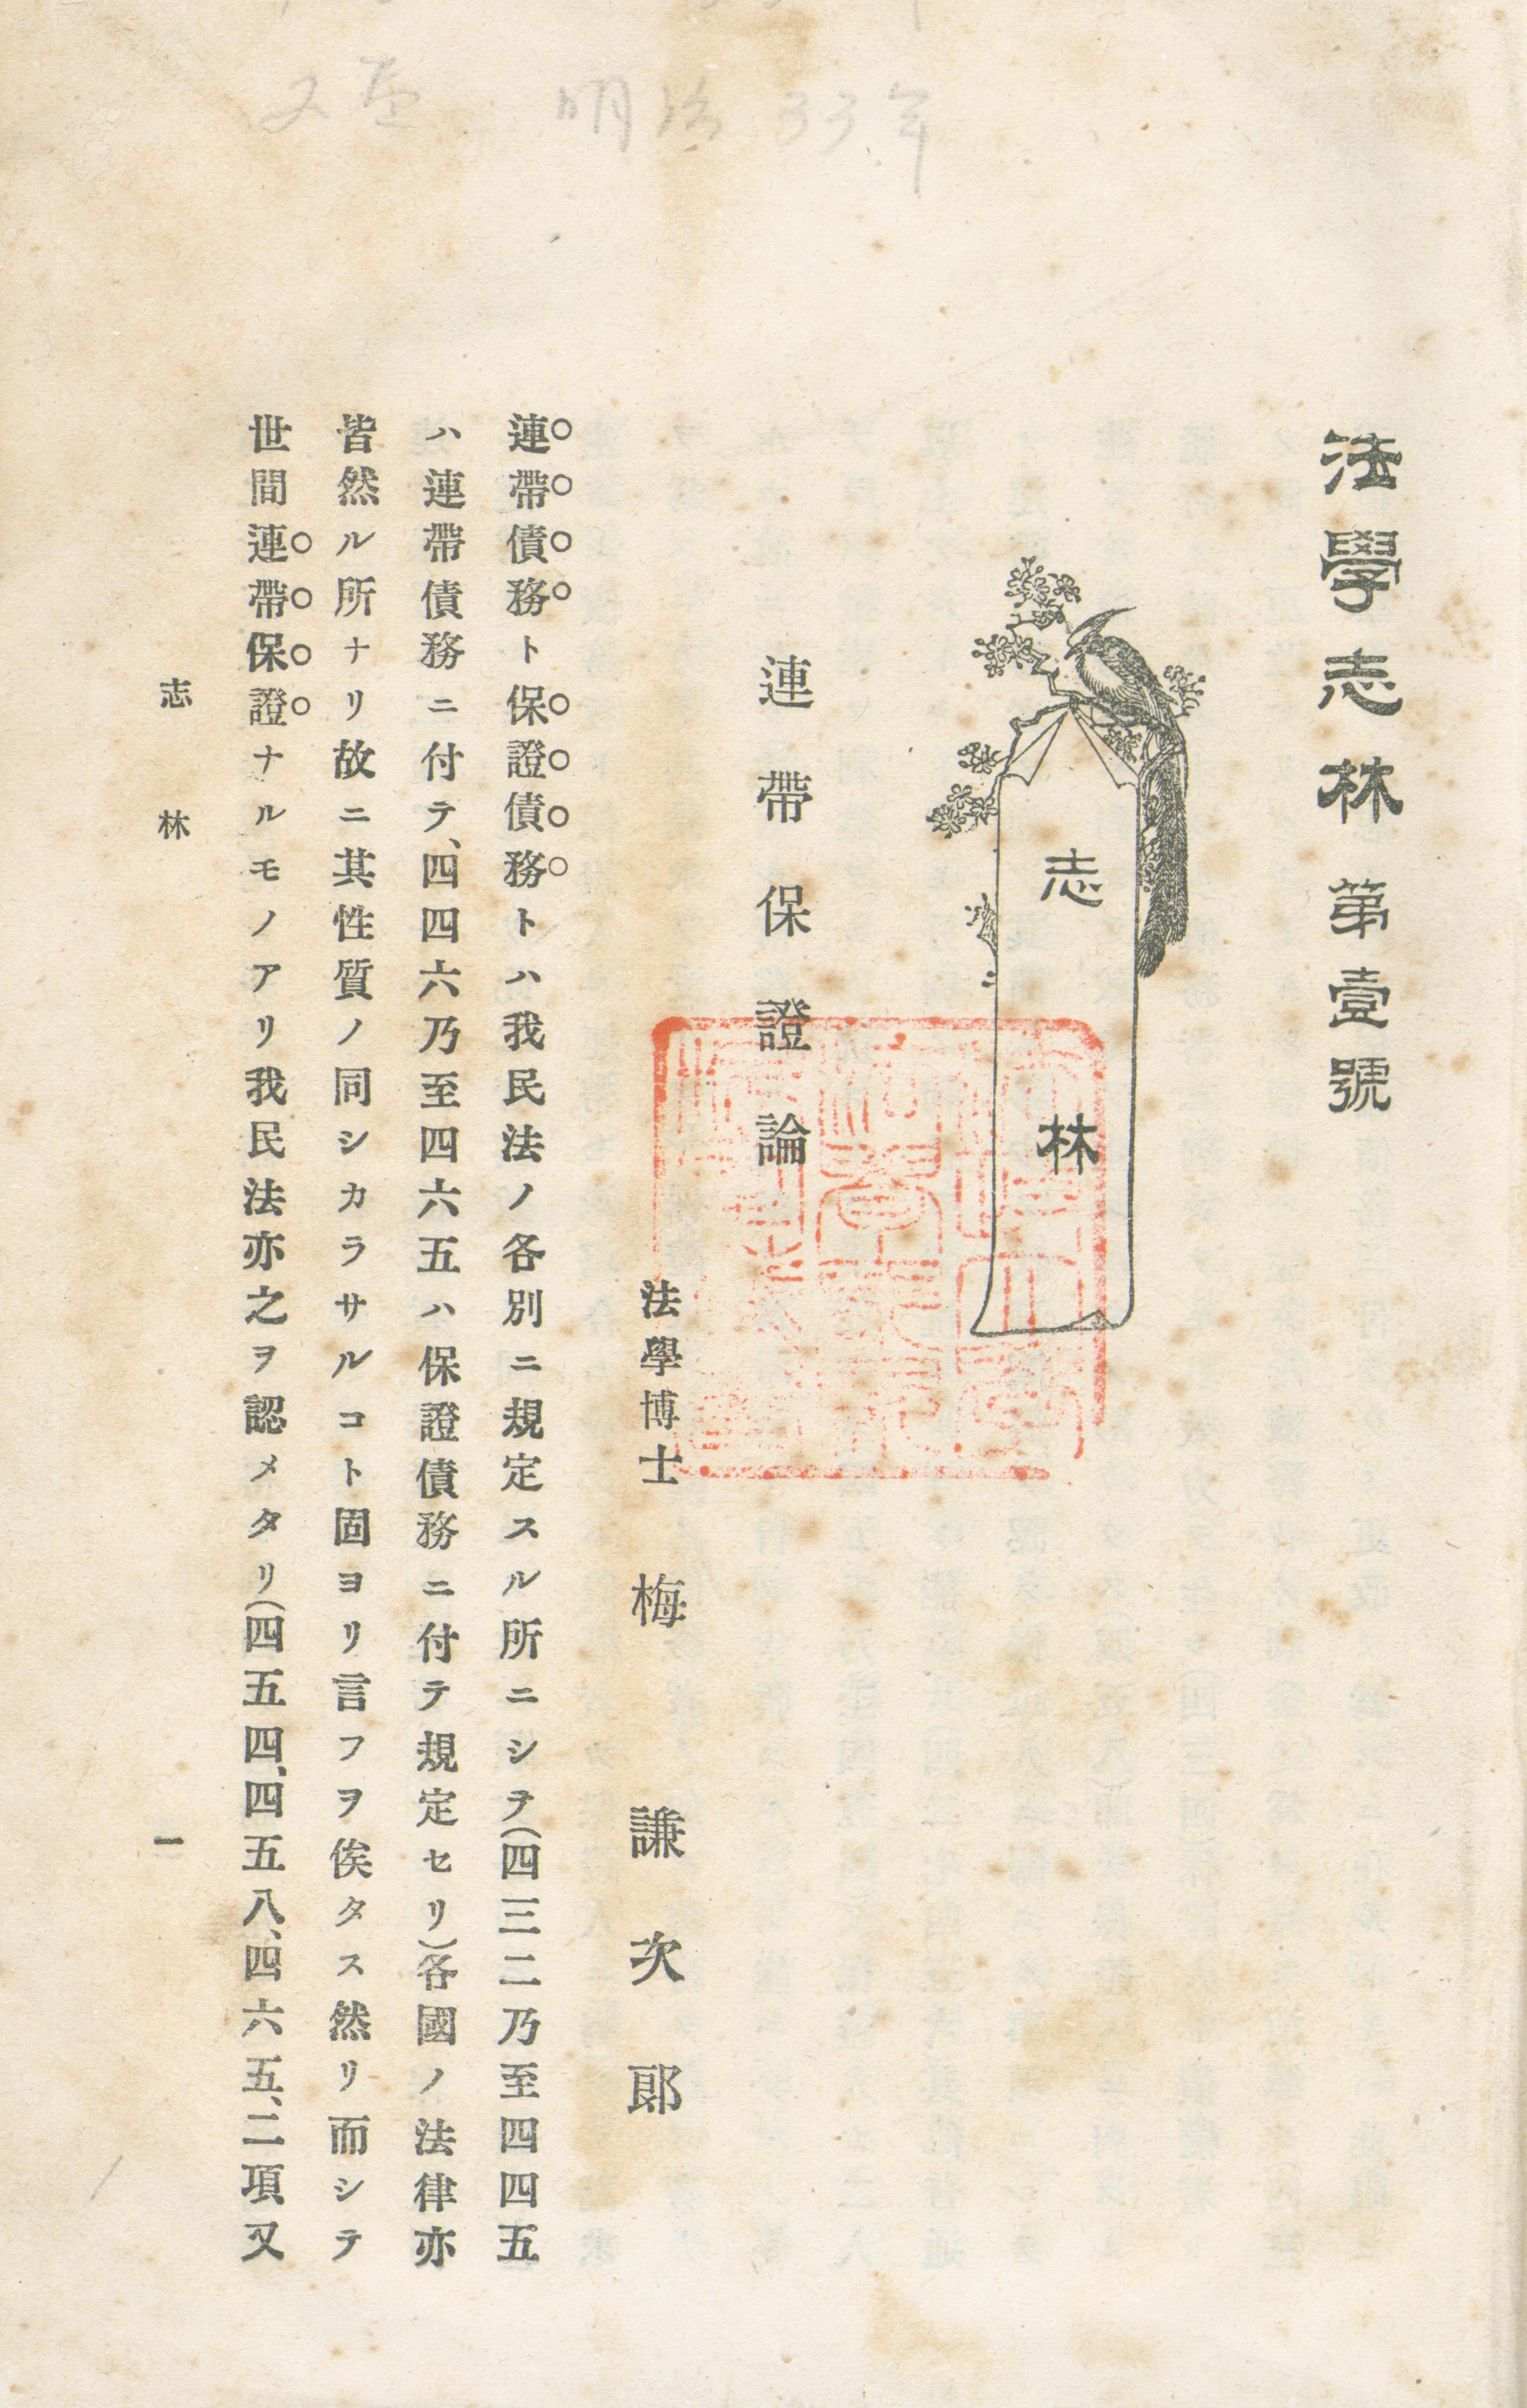 明治33年
法學志林第壹號
志林
連帶保證論
法學博士 梅謙次郎
連帶債務ト保證債務トハ我民法ノ各別ニ規定スル所ニシテ(四三二乃至四四五
ハ連帶債務ニ付テ、四四六乃至四六五ハ保證債務ニ付テ規定セリ)各國ノ法律亦
皆然ル所ナリ故ニ其性質ノ同シカラサルコト固ヨリ言フヲ俟タス然リ而シテ
世間連帶保證ナルモノアリ我民法亦之ヲ認メタリ(四五四、四五八、四六五、二項又
志林
一